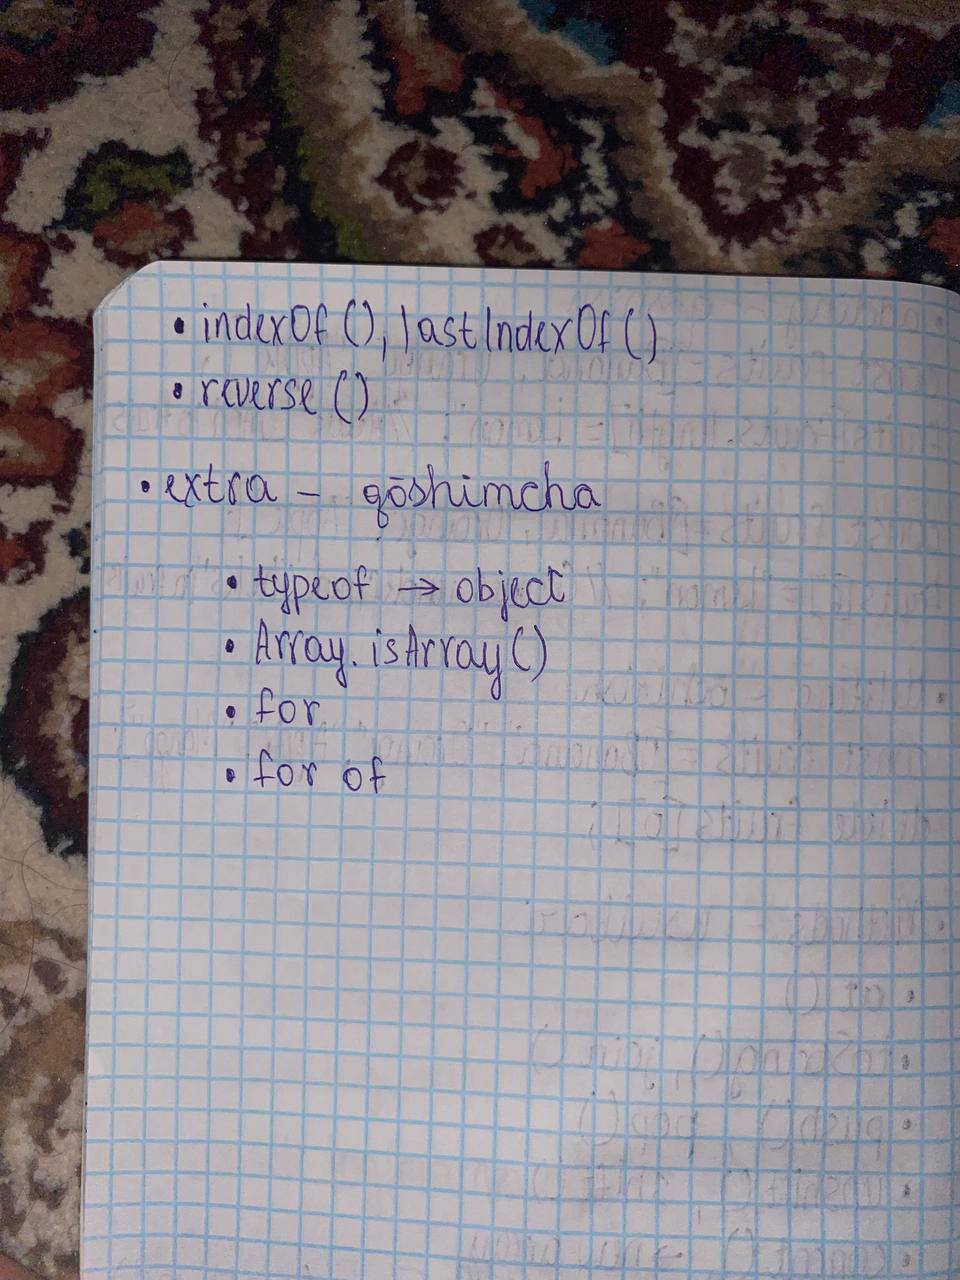 • indexOf(), lastIndexOf()
• reverse()
• extra – qōshimcha
• typeof → object
• Array.isArray()
• for
• for of